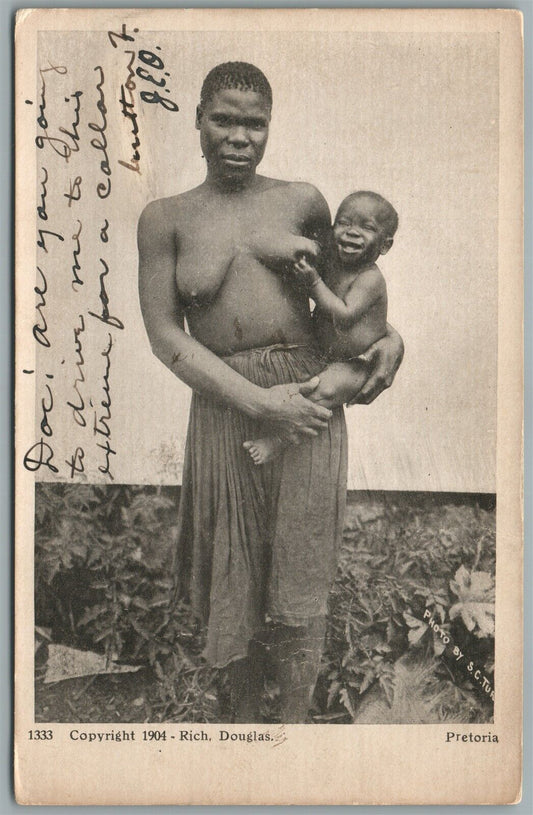 Doc', are you going
to drive me to this
extreme for a collar
button?
J.E.O.
PHOTO BY S.C. TUR
1333 Copyright 1904 - Rich, Douglas. Pretoria